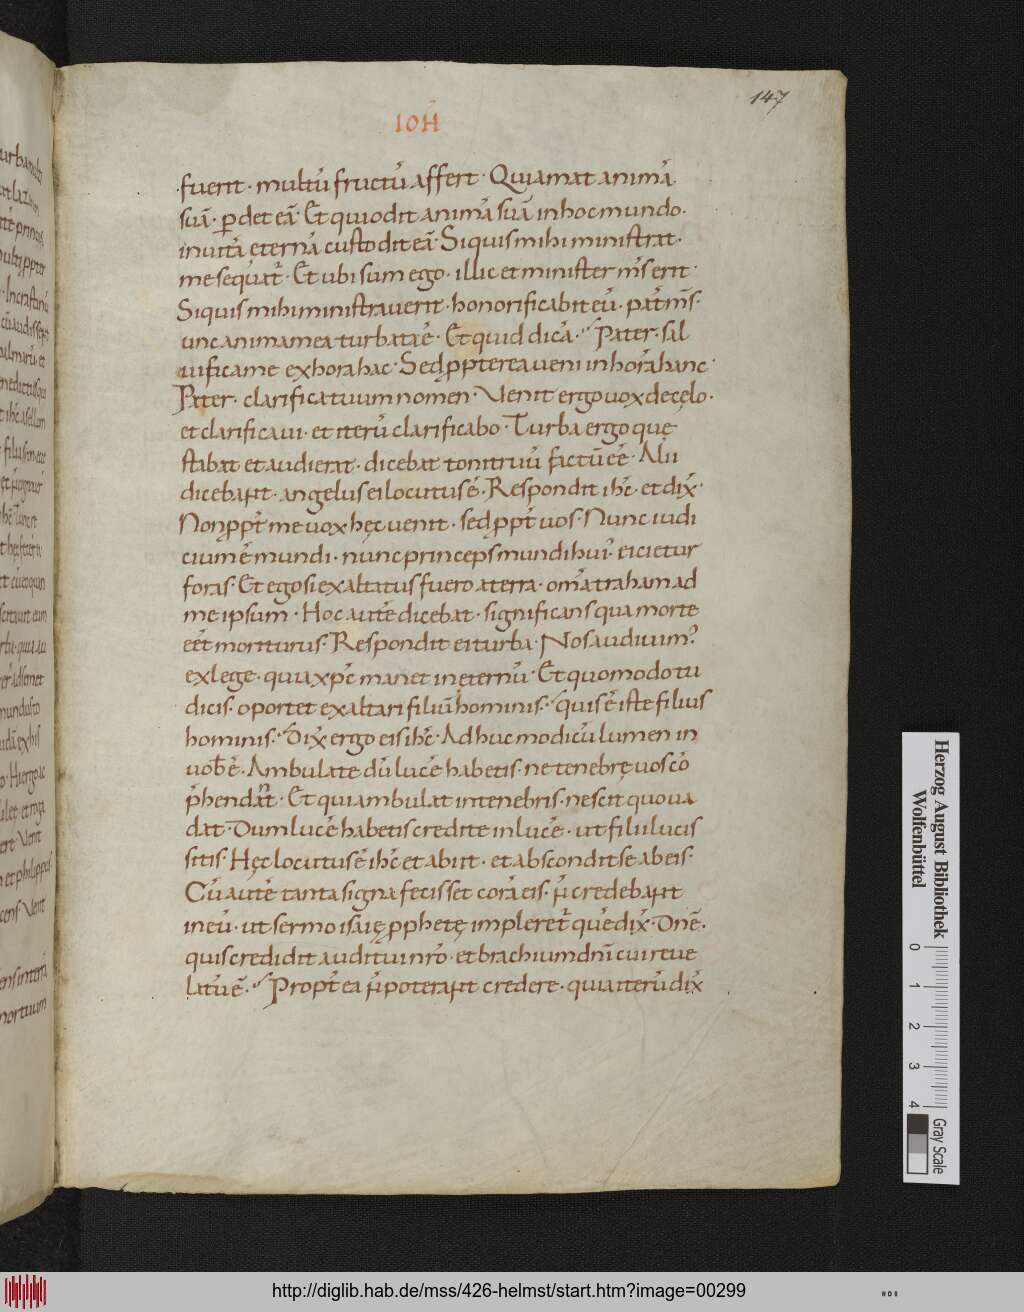 147
IOH̄
fuerit · multū fructū affert · Qui amat animā
suā · ꝑdet eā · Et qui odit animā suā in hoc mundo ·
in uitā eternā custodit eā · Si quis mihi ministrat ·
me sequat᷑ · Et ubi sum ego · illic et minister m̄s erit ·
Si quis mihi ministrauerit · honorificabit eū · pat̄ m̄s ·
unc anima mea turbata ē · Et quid dicā · Pater · sal
uifica me ex hora hac · Sed ꝓpterea ueni in horā hanc ·
Pater · clarifica tuum nomen · Uenit ergo uox de cęlo ·
et clarificaui · et iterū clarificabo · Turba ergo quę
stabat et audierat · dicebat tonitruū factū eē · Alii
dicebant · angelus ei locutus ē · Respondit ihc̄ · et dix̄ ·
Non ꝓpt̄ me uox hęc uenit · sed ꝓpt̄ uos · Nunc iudi
cium ē mundi · nunc princeps mundi hui᾽ eicietur
foras · Et ego si exaltatus fuero a terra · om̄a traham ad
me ipsum · Hoc autē dicebat · significans qua morte
eēt moriturus · Respondit ei turba · Nos audiuim᾽
ex lege · quia xp̄c manet in ęternū · Et quomodo tu
dicis · oportet exaltari filiū hominis · quis ē iste filius
hominis · Dix̄ ergo eis ihc̄ · Adhuc modicū lumen in
uob̄ ē · Ambulate dū lucē habetis · ne tenebrę uos cō
p̄hendant · Et qui ambulat in tenebris · nescit quo ua
dat · Dum lucē habetis credite in lucē · ut filii lucis
sitis · Hęc locutus ē ihc̄ et abiit · et abscondit se ab eis ·
Cū autē tanta signa fecisset corā eis · n̄ credebant
in eū · ut sermo isaię ꝓphetę impleret᷑ quē dix̄ · Dnē ·
quis credidit auditui nr̄o · et brachium dn̄i cui reue
latū ē · Propt̄ ea n̄ poterant credere · quia iterū dix̄
Herzog August Bibliothek
Wolfenbüttel
0 1 2 3 4
Gray Scale
http://diglib.hab.de/mss/426-helmst/start.htm?image=00299